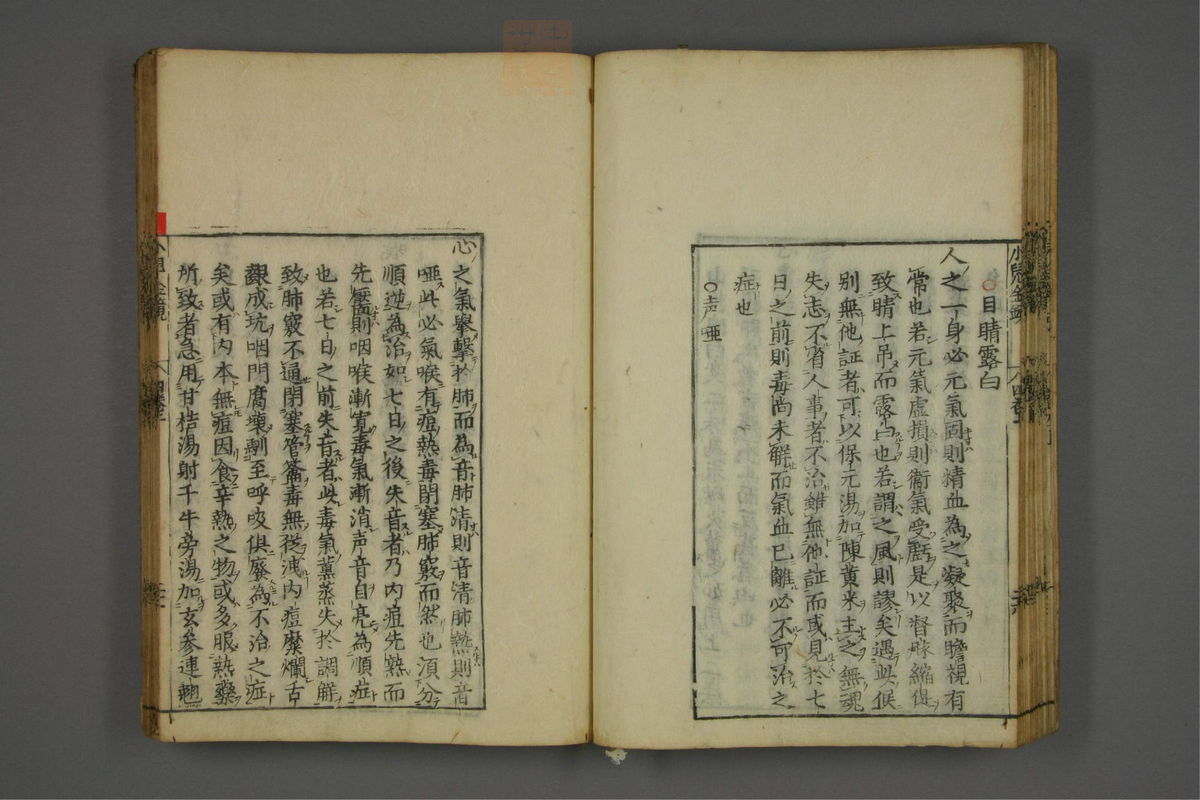 ○目睛露白
人之一身必元氣固則精血為之凝聚而瞻視有
常也若元氣虛損則衛氣受虧是以督脉縮促
致睛上吊而露白也若謂之風則謬矣遇此候
別無他証者可以保元湯加陳黄米主之無魂
失志不省人事者不治雖無他証而或見於七
日之前則毒尚未解而氣血已離必不可治之
症也
○声啞
心之氣舉擊於肺而為音肺清則音清肺熱則音
啞此必氣喉有痘熱毒閉塞肺竅而然也須分
順逆為治如七日之後失音者乃内痘先熟而
先靨則咽喉漸寛毒氣漸消声音自亮為順症
也若七日之前失音者此毒氣薫蒸失於調解
致肺竅不通閉塞管籥毒無從洩内痘糜爛舌
成坑咽門腐壞馴至呼吸俱廢為不治之症
矣或有内本無痘因食辛熱之物或多服熱藥
所致者急用甘桔湯射干牛旁湯加玄参連翹